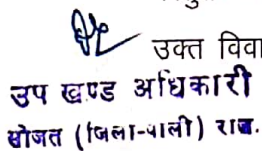 उक्त विवा
उप खण्ड अधिकारी
सोजत (जिला-पाली) राज.